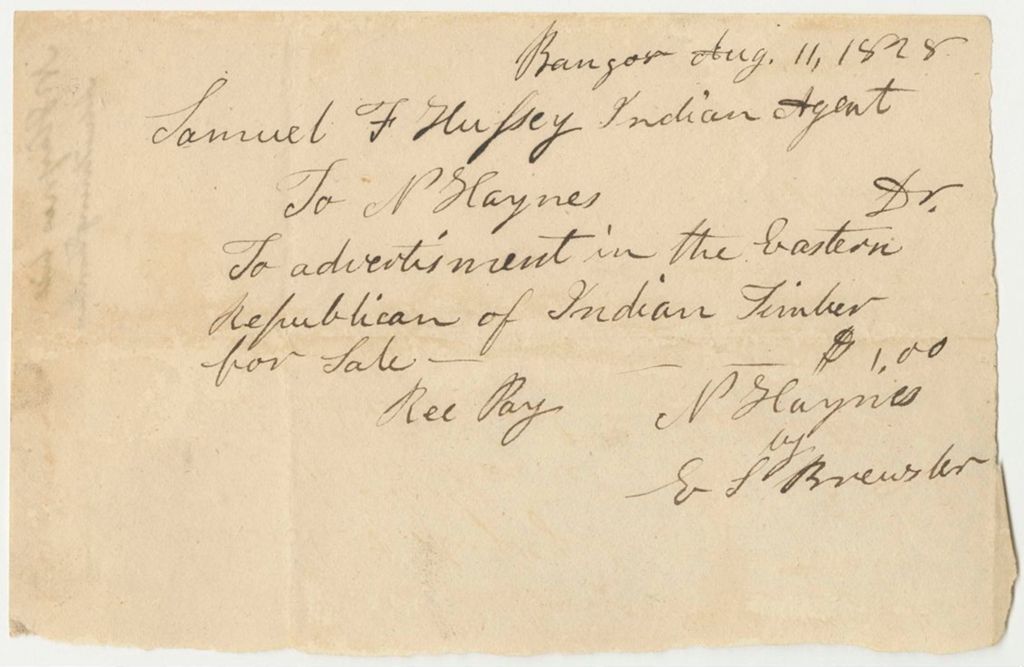 Bangor Aug. 11, 1828
Samuel F Hussey Indian Agent
To N Haynes Dr.
To advertisment in the Eastern
Republican of Indian Timber
for Sale — — — $1,00
Rec Pay N Haynes
by
E S Brewster